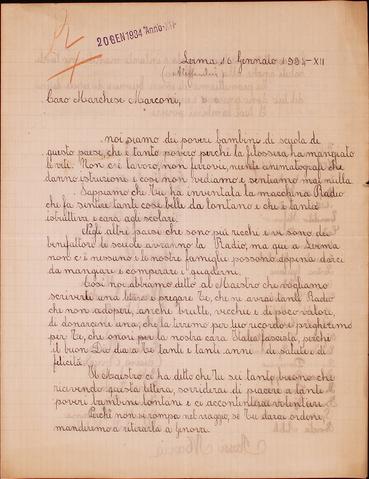 20 GEN 1934 Anno XII
Lerma 16 Gennaio 1934-XII
(Alessandria)
Caro Marchese Marconi,
noi siamo dei poveri bambini di scuola di
questo paese, che è tanto povero perchè la filossera ha mangiato
le viti. Non c'è lavoro, non ferrovia, niente cinematografi che
danno istruzione e così non vediamo e sentiamo mai nulla.
Sappiamo che Tu hai inventata la macchina Radio
che fa sentire tante cose belle da lontano e che è tanta
istruttiva e cara agli scolari.
Negli altri paesi che sono più ricchi e vi sono dei
benefattori le scuole avranno la Radio, ma qui a Lerma
non c'è nessuno e le nostre famiglie possono appena darci
da mangiare e comperare i quaderni.
Così noi abbiamo ditto al Maestro che vogliamo
scriverti una lettera e pregare Te, che ne avrai tante Radio
che non adoperi, anche brutte, vecchie e di poco valore,
di donarcene una, che la terremo per tuo ricordo e pregheremo
per Te, che onori per la nostra cara Italia fascista, perchè
il buon Dio dia a Te tanti e tanti anni di salute e di
felicità.
Il Maestro ci ha ditto che Tu sei tanto buono che
ricevendo questa lettera, sorriderai di piacere a tanti
poveri bambini lontani e ci accontenterai volentieri.
Perchè non si rompa nel viaggio, se Tu darai ordine,
manderemo a ritirarla a Genova.